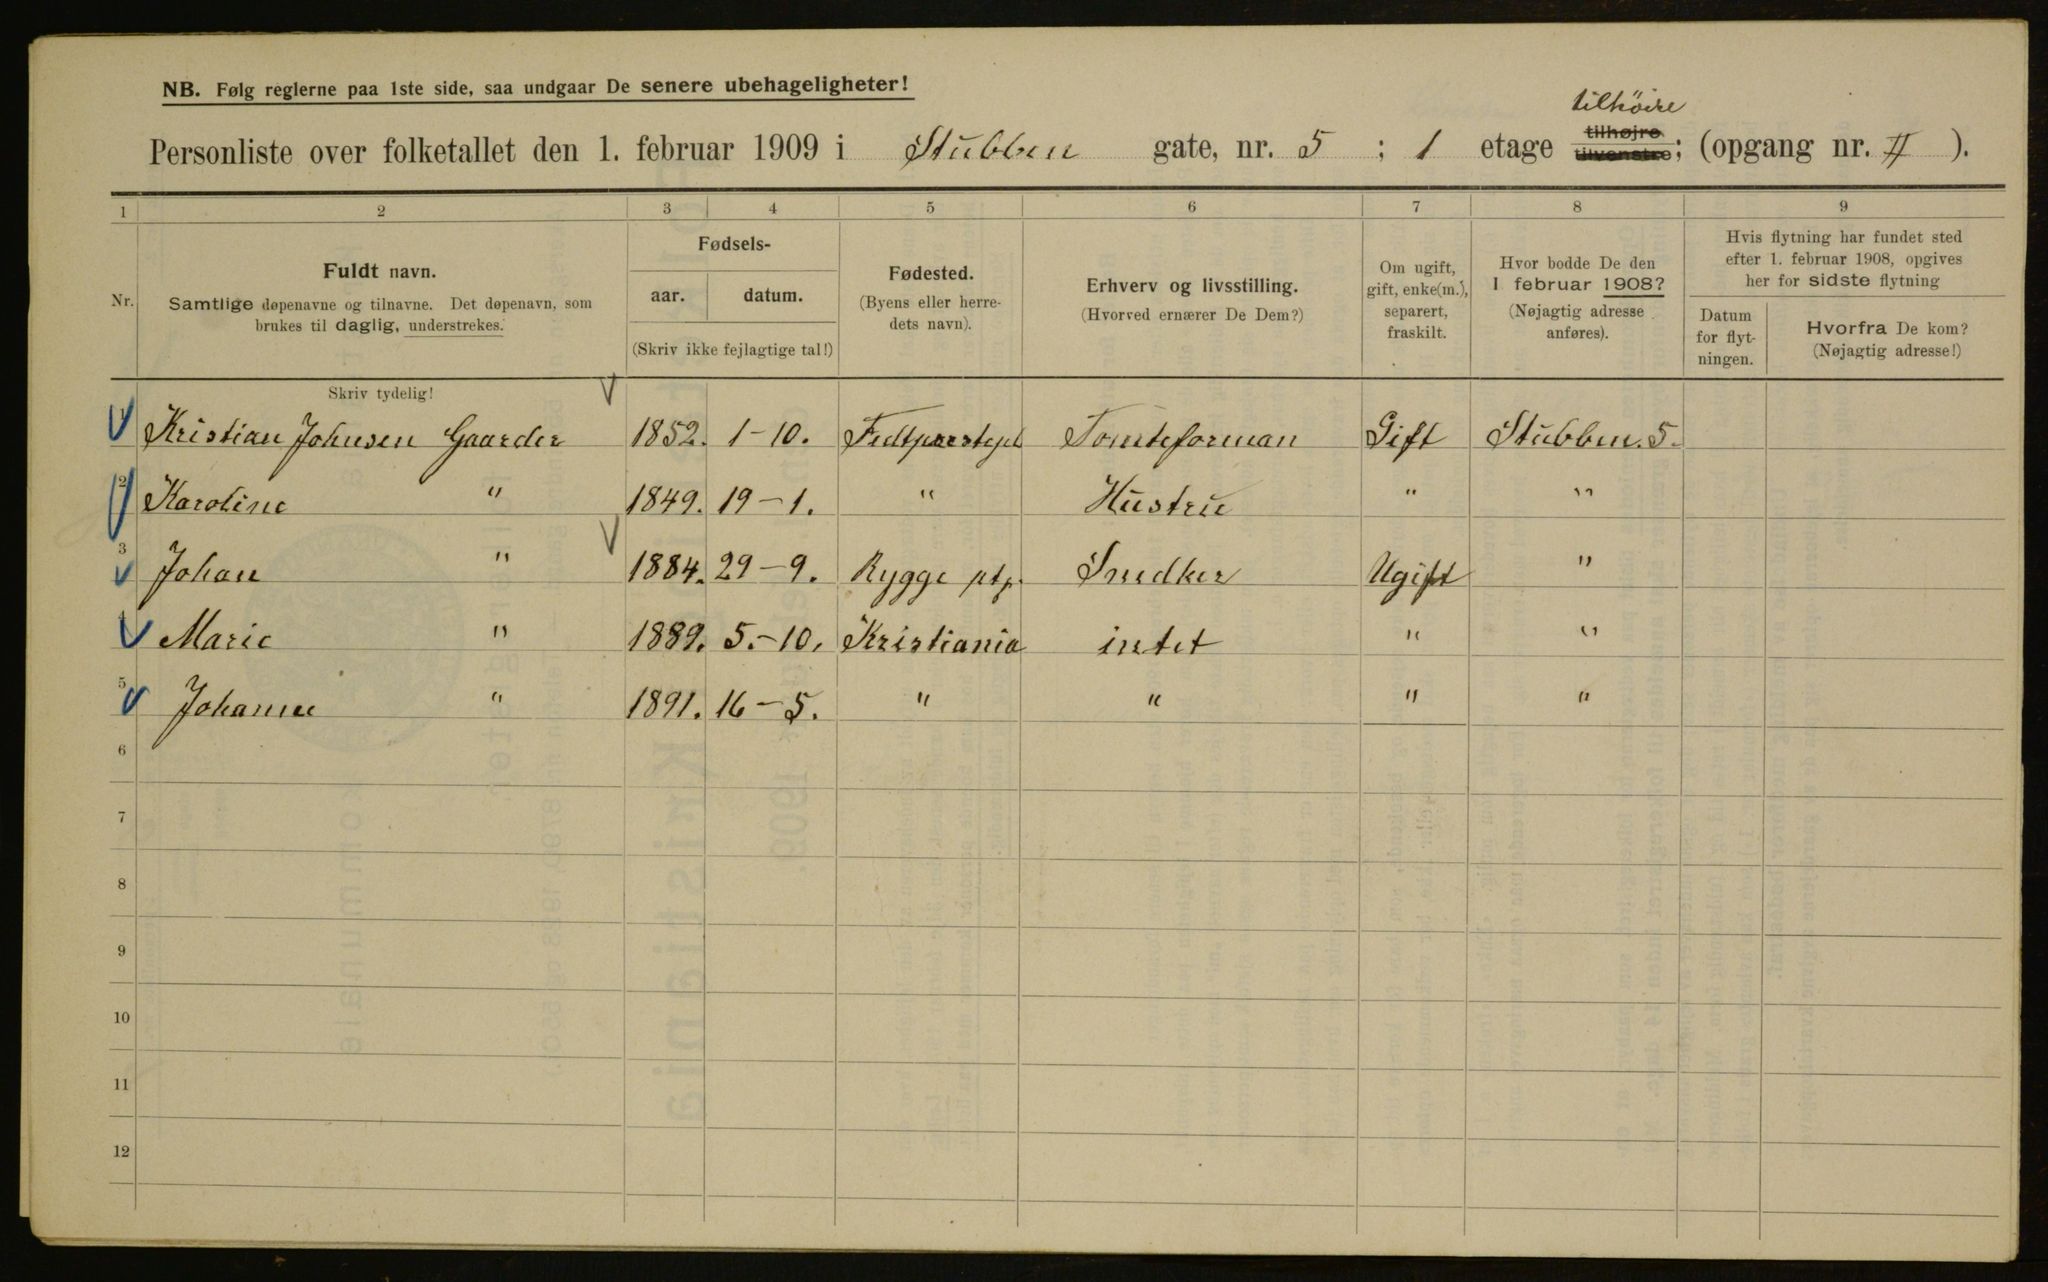 NB. Følg reglerne paa 1ste side, saa undgaar De senere ubehageligheter!
tilhöire
Personliste over folketallet den 1. februar 1909 i Stubben gate, nr. 5 ; 1 etage tilhøjre tilvenstre; (opgang nr. II ).
1 2 3 4 5 6 7 8 9
Nr.
Fuldt navn.
Samtlige døpenavne og tilnavne. Det døpenavn, som
brukes til daglig, understrekes.
Fødsels-
aar. datum.
(Skriv ikke fejlagtige tal!)
Fødested.
(Byens eller herre-
dets navn).
Erhverv og livsstilling.
(Hvorved ernærer De Dem?)
Om ugift,
gift, enke(m.),
separert,
fraskilt.
Hvor bodde De den
1 februar 1908?
(Nøjagtig adresse
anføres).
Hvis flytning har fundet sted
efter 1. februar 1908, opgives
her for sidste flytning
Datum
for flyt-
ningen.
Hvorfra De kom?
(Nøjagtig adresse!)
Skriv tydelig!
1 Kristian Johnsen Gaarder 1852. 1-10. Tomteforman Gift Stubben. 5.
2 Karoline " 1849. 19-1. " Hustru " "
3 Johan " 1884. 29-9. Rygge ptp. Snedker Ugift "
4 Marie " 1889. 5.-10. Kristiania intet " "
5 Johanne " 1891. 16-5. " " " "
6
7
8
9
10
11
12